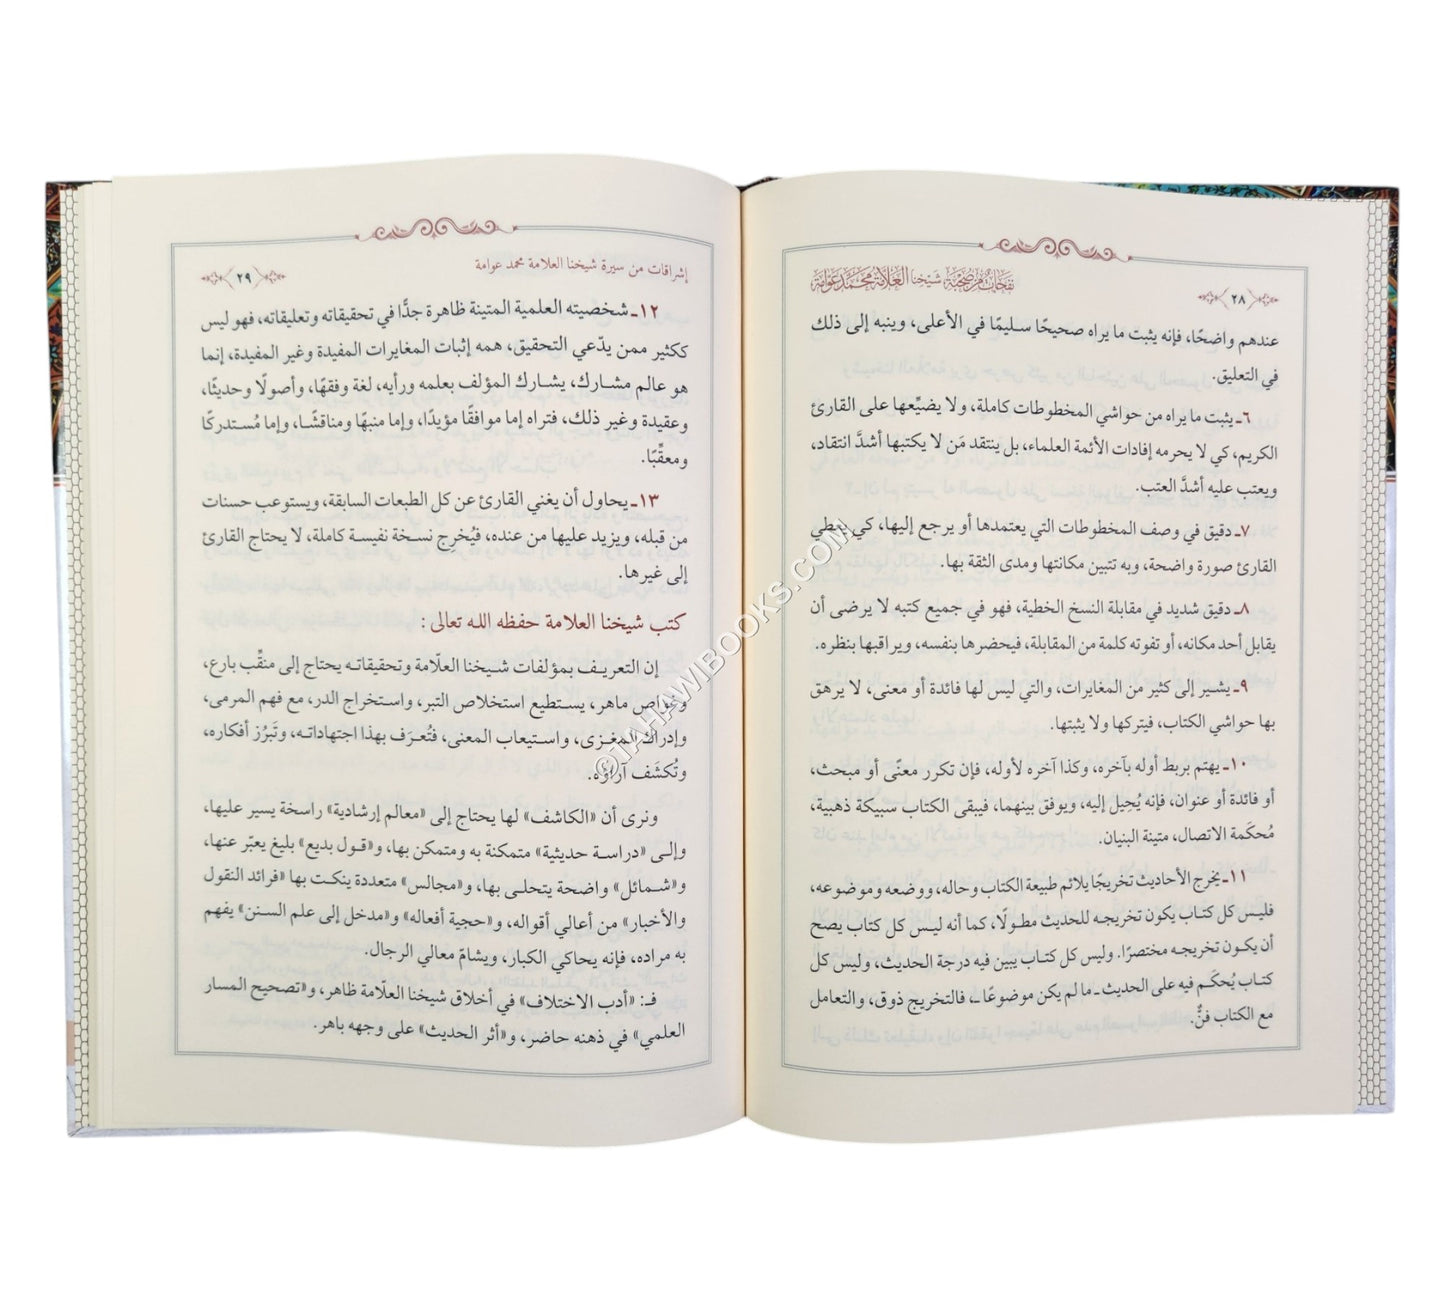 ٢٨
نفحات من صحبة شيخنا العلامة محمد عوامة
عندهم واضحًا، فإنه يثبت ما يراه صحيحًا سليمًا في الأعلى، وينبه إلى ذلك
في التعليق.
٦ـ يثبت ما يراه من حواشي المخطوطات كاملة، ولا يضيِّعها على القارئ
الكريم، كي لا يحرمه إفادات الأئمة العلماء، بل ينتقد مَن لا يكتبها أشدَّ انتقاد،
ويعتب عليه أشدَّ العتب.
٧ـ دقيق في وصف المخطوطات التي يعتمدها أو يرجع إليها، كي يعطي
القارئ صورة واضحة، وبه تتبين مكانتها ومدى الثقة بها.
٨ـ دقيق شديد في مقابلة النسخ الخطية، فهو في جميع كتبه لا يرضى أن
يقابل أحد مكانه، أو تفوته كلمة من المقابلة، فيحضرها بنفسه، ويراقبها بنظره.
٩ـ يشير إلى كثير من المغايرات، والتي ليس لها فائدة أو معنى، لا يرهق
بها حواشي الكتاب، فيتركها ولا يثبتها.
١٠ـ يهتم بربط أوله بآخره، وكذا آخره لأوله، فإن تكرر معنًى أو مبحث،
أو فائدة أو عنوان، فإنه يُحِيل إليه، ويوفق بينهما، فيبقى الكتاب سبيكة ذهبية،
مُحكَمة الاتصال، متينة البنيان.
١١ـ يخرج الأحاديث تخريجًا يلائم طبيعة الكتاب وحاله، ووضعه وموضوعه،
فليس كل كتاب يكون تخريجه للحديث مطولًا، كما أنه ليس كل كتاب يصح
أن يكون تخريجه مختصرًا. وليس كل كتاب يبين فيه درجة الحديث، وليس كل
كتاب يُحكَم فيه على الحديث ـ ما لم يكن موضوعًا ـ، فالتخريج ذوق، والتعامل
مع الكتاب فنٌّ.
إشراقات من سيرة شيخنا العلامة محمد عوامة
٢٩
١٢ـ شخصيته العلمية المتينة ظاهرة جدًّا في تحقيقاته وتعليقاته، فهو ليس
ككثير ممن يدّعي التحقيق، همه إثبات المغايرات المفيدة وغير المفيدة، إنما
هو عالم مشارك، يشارك المؤلف بعلمه ورأيه، لغة وفقهًا، وأصولًا وحديثًا،
وعقيدة وغير ذلك، فتراه إما موافقًا مؤيدًا، وإما منبهًا ومناقشًا، وإما مُستدركًا
ومعقِّبًا.
١٣ـ يحاول أن يغني القارئ عن كل الطبعات السابقة، ويستوعب حسنات
من قبله، ويزيد عليها من عنده، فيُخرِج نسخة نفيسة كاملة، لا يحتاج القارئ
إلى غيرها.
كتب شيخنا العلامة حفظه الله تعالى:
إن التعريف بمؤلفات شيخنا العلّامة وتحقيقاته يحتاج إلى منقِّب بارع،
وغواص ماهر، يستطيع استخلاص التبر، واستخراج الدر، مع فهم المرمى،
وإدراك المغزى، واستيعاب المعنى، فتُعرَف بهذا اجتهاداته، وتَبرُز أفكاره،
وتُكشَف آراؤه.
ونرى أن «الكاشف» لها يحتاج إلى «معالم إرشادية» راسخة يسير عليها،
وإلى «دراسة حديثية» متمكنة به ومتمكن بها، و«قول بديع» بليغ يعبّر عنها،
و«شمائل» واضحة يتحلى بها، و«مجالس» متعددة ينكت بها «فرائد النقول
والأخبار» من أعالي أقواله، و«حجية أفعاله» و«مدخل إلى علم السنن» يفهم
به مراده، فإنه يحاكي الكبار، ويشامّ معالي الرجال.
فـ: «أدب الاختلاف» في أخلاق شيخنا العلّامة ظاهر، و«تصحيح المسار
العلمي» في ذهنه حاضر، و«أثر الحديث» على وجهه باهر.
©TAHAWIBOOKS.COM